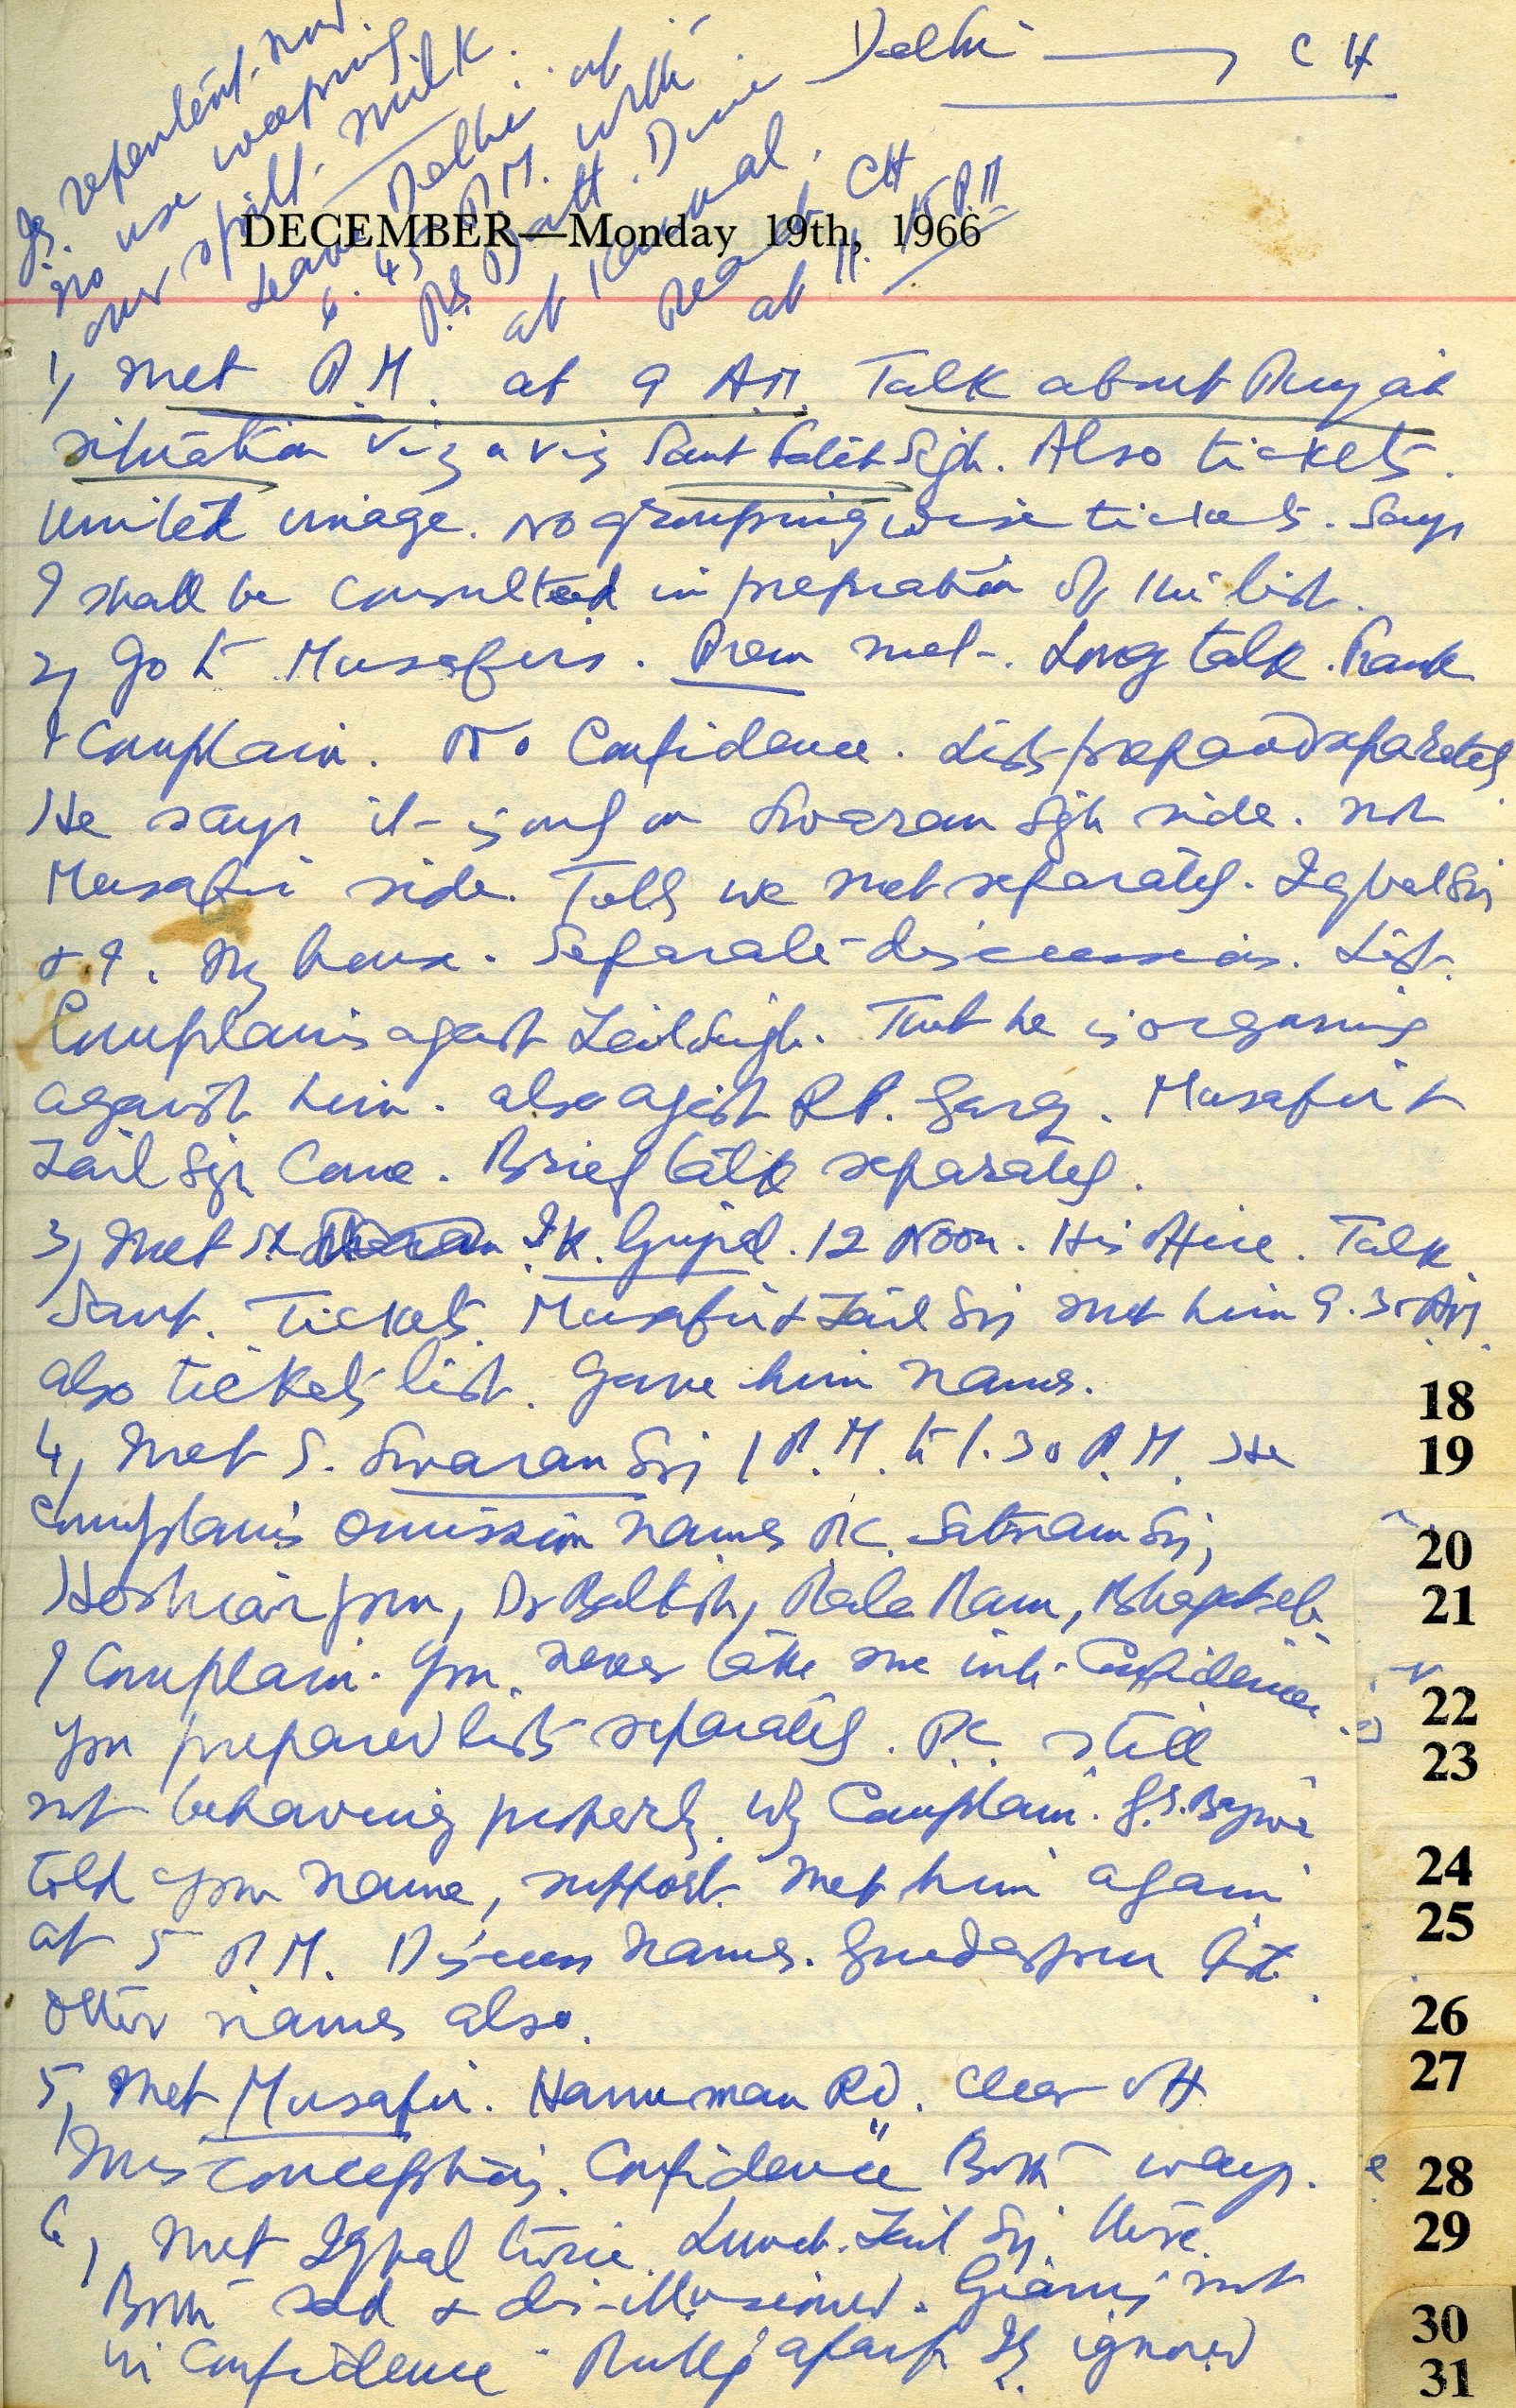 Delhi → CH
repentent. now
no use weeping
over spilt milk.
Leave Delhi at
6.45 P.M. with
R.S. Datt. Dine
at Karnal.
Reach CH
at 11.15 P.M
DECEMBER—Monday 19th, 1966
1) Met P.M. at 9 A.M. Talk about Punjab
situation viz a viz Sant Fateh Sigh. Also tickets.
United image. No groupingwise tickets. Says
I shall be consulted in prepration of the list.
2) Go to Musafirs. Prem met. Long talk. Frank
I Complain. No Confidence. Lists prepared separately
He says it is only on Swaran Sigh side. not
Musafir side. Tells we met separately. Iqbal Sin
& I. My house. Separate discussions. List.
Complains against Zail Singh. That he is organising
against him. also against R.P. Garg. Musafir &
Zail Sigh Come. Brief talk separately.
3) Met Sh I.K. Gujral. 12 Noon. His Office. Talk
Sant. Tickets. Musafir & Zail Sin met him 9.30 AM
also tickets list. Gave him names.
4) Met S. Swaran Sin 1 P.M. to 1.30 P.M. He
Complains omission names P.C. Satnam Sin,
Hoshiarpur, Dr Balkish, Rala Ram,
I Complain. You never take me into Confidence
You prepared lists separately. P.C. still
not behaving properly. Why Complain. G.S. Bajwa
told your name, support. Met him again
at 5 P.M. Discuss names. Gurdaspur list
other names also.
5) Met Musafir. Hanuman Rd. Clear off
Misconceptions. Confidence Both ways.
6) Met Iqbal twice. Lunch. Zail Sin there.
Both sad & dis-illusioned. Giani not
in Confidence. apart. ignored
18
19
20
21
22
23
24
25
26
27
28
29
30
31